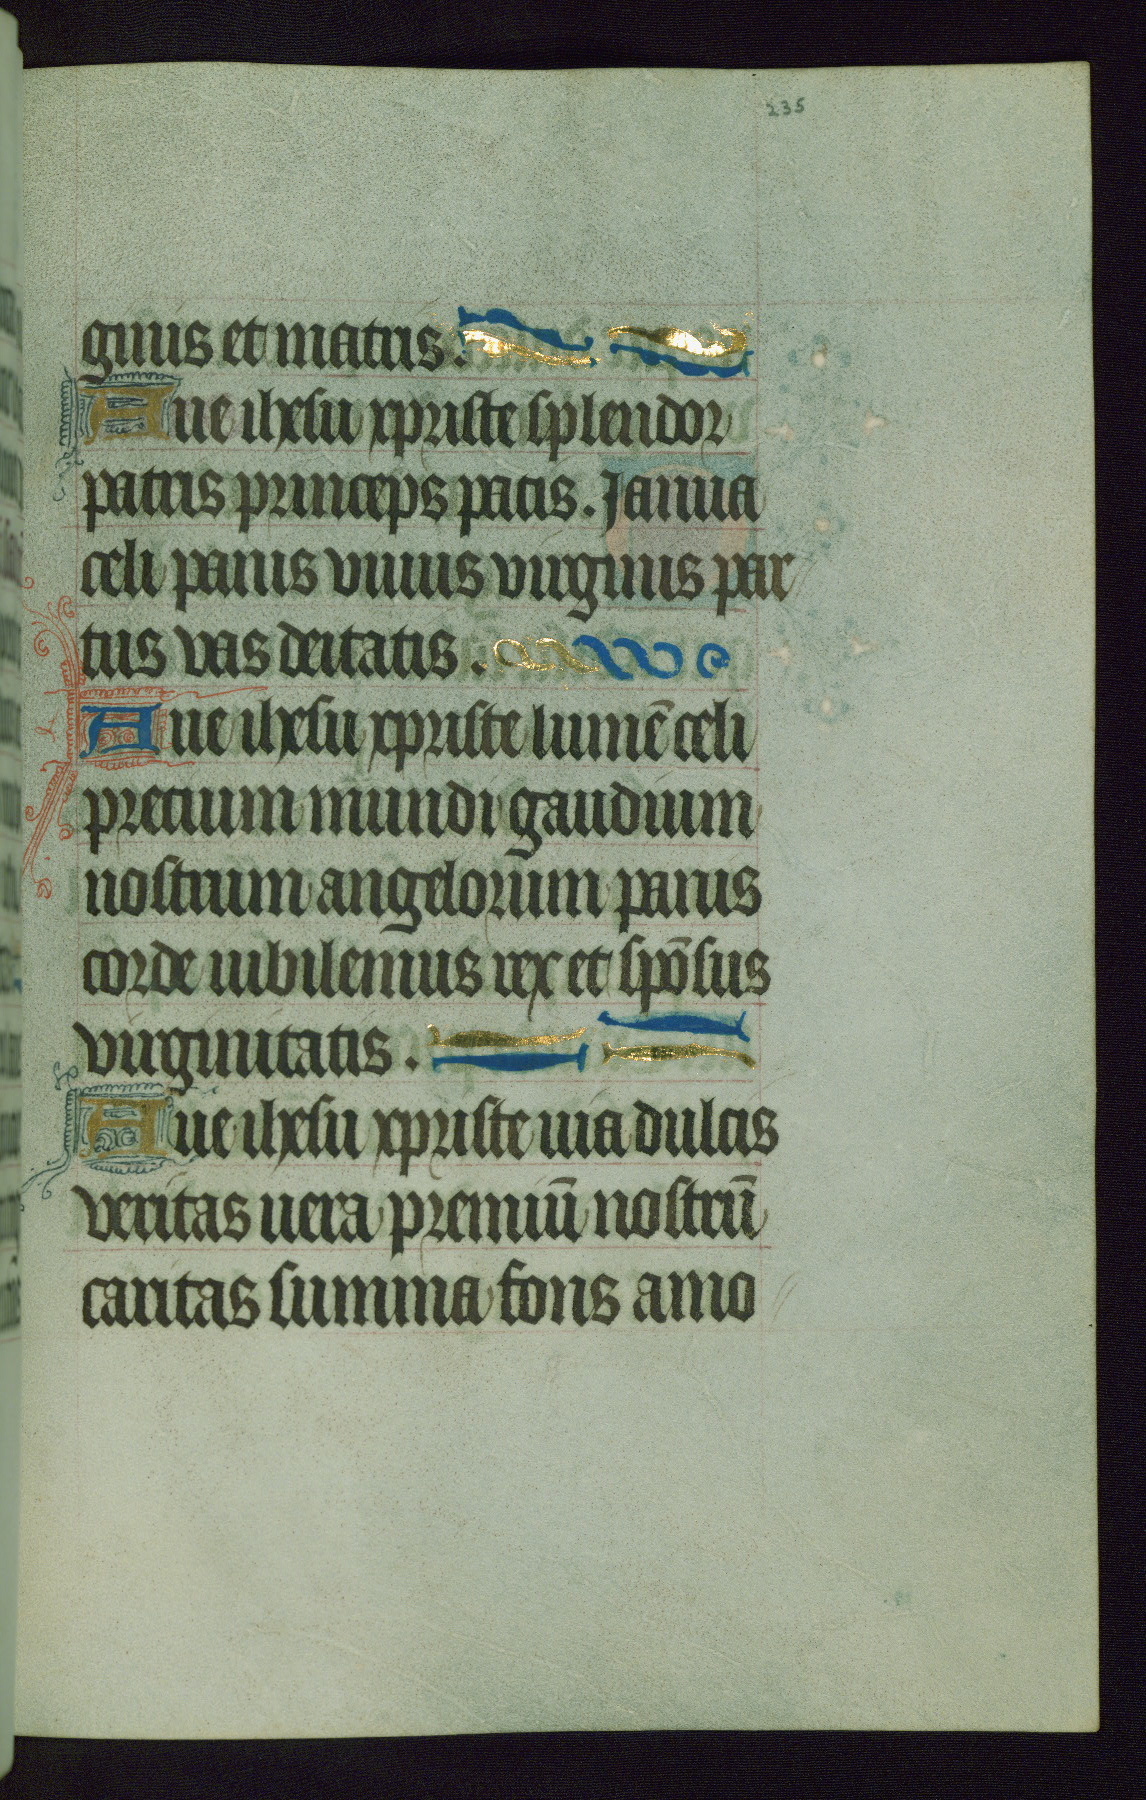 235
ginis et matris.
Aue ihesu xpriste splendor
patris princeps pacis. Janua
celi panis viuus virginis par
tus vas deitatis.
Aue ihesu xpriste lumē celi
precium mundi gaudium
nostrum angelorum panis
corde iubilemus rex et spōsus
virginitatis.
Aue ihesu xpriste uia dulcis
veritas uera premiū nostrū
caritas summa fons amo